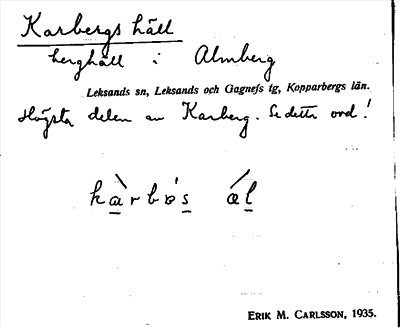 Karbergs häll
berghäll i Almberg
Leksands sn, Leksands och Gagnefs tg, Kopparbergs län.
Högsta delen av Karberg. Se detta ord!
kàrbɷ's ǽl
ERIK M. CARLSSON, 1935.